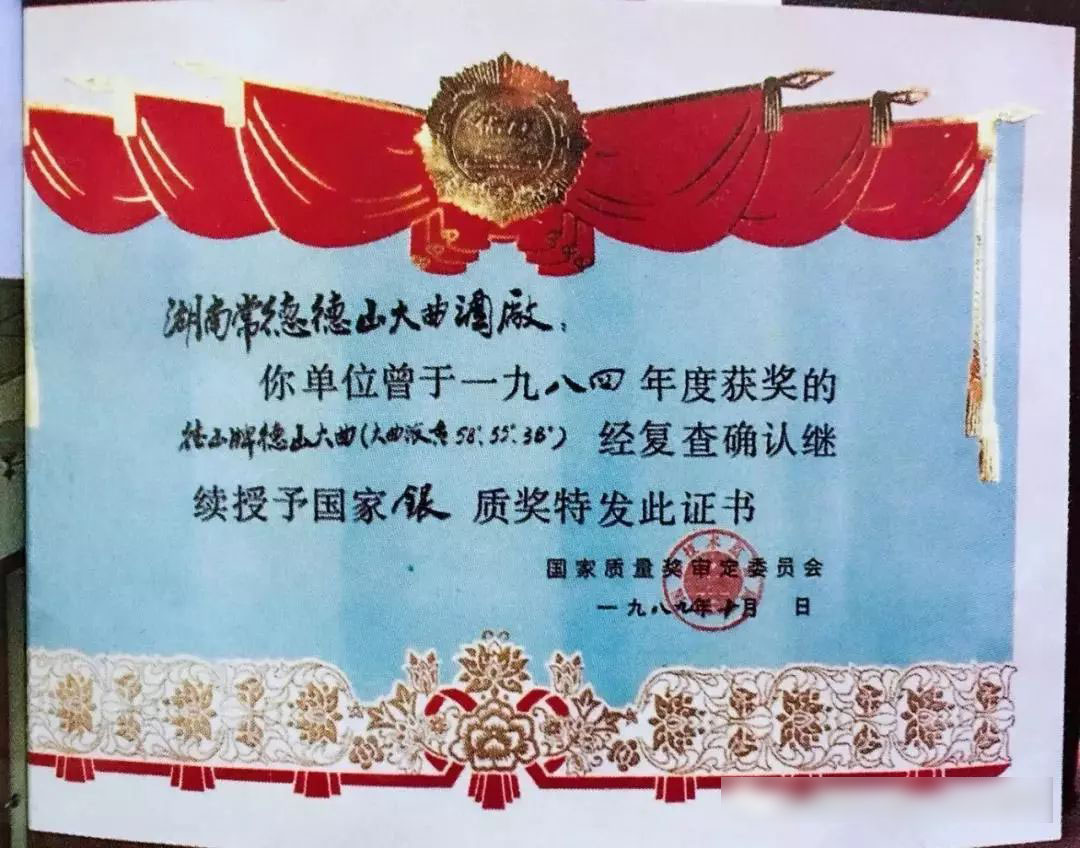 湖南常德德山大曲酒廠：
你单位曾于一九八四年度获奖的
德山牌德山大曲(大曲浓香58°.55°.38°) 经复查确认继
续授予国家银质奖特发此证书
国家质量奖审定委员会
一九八九年十月 日